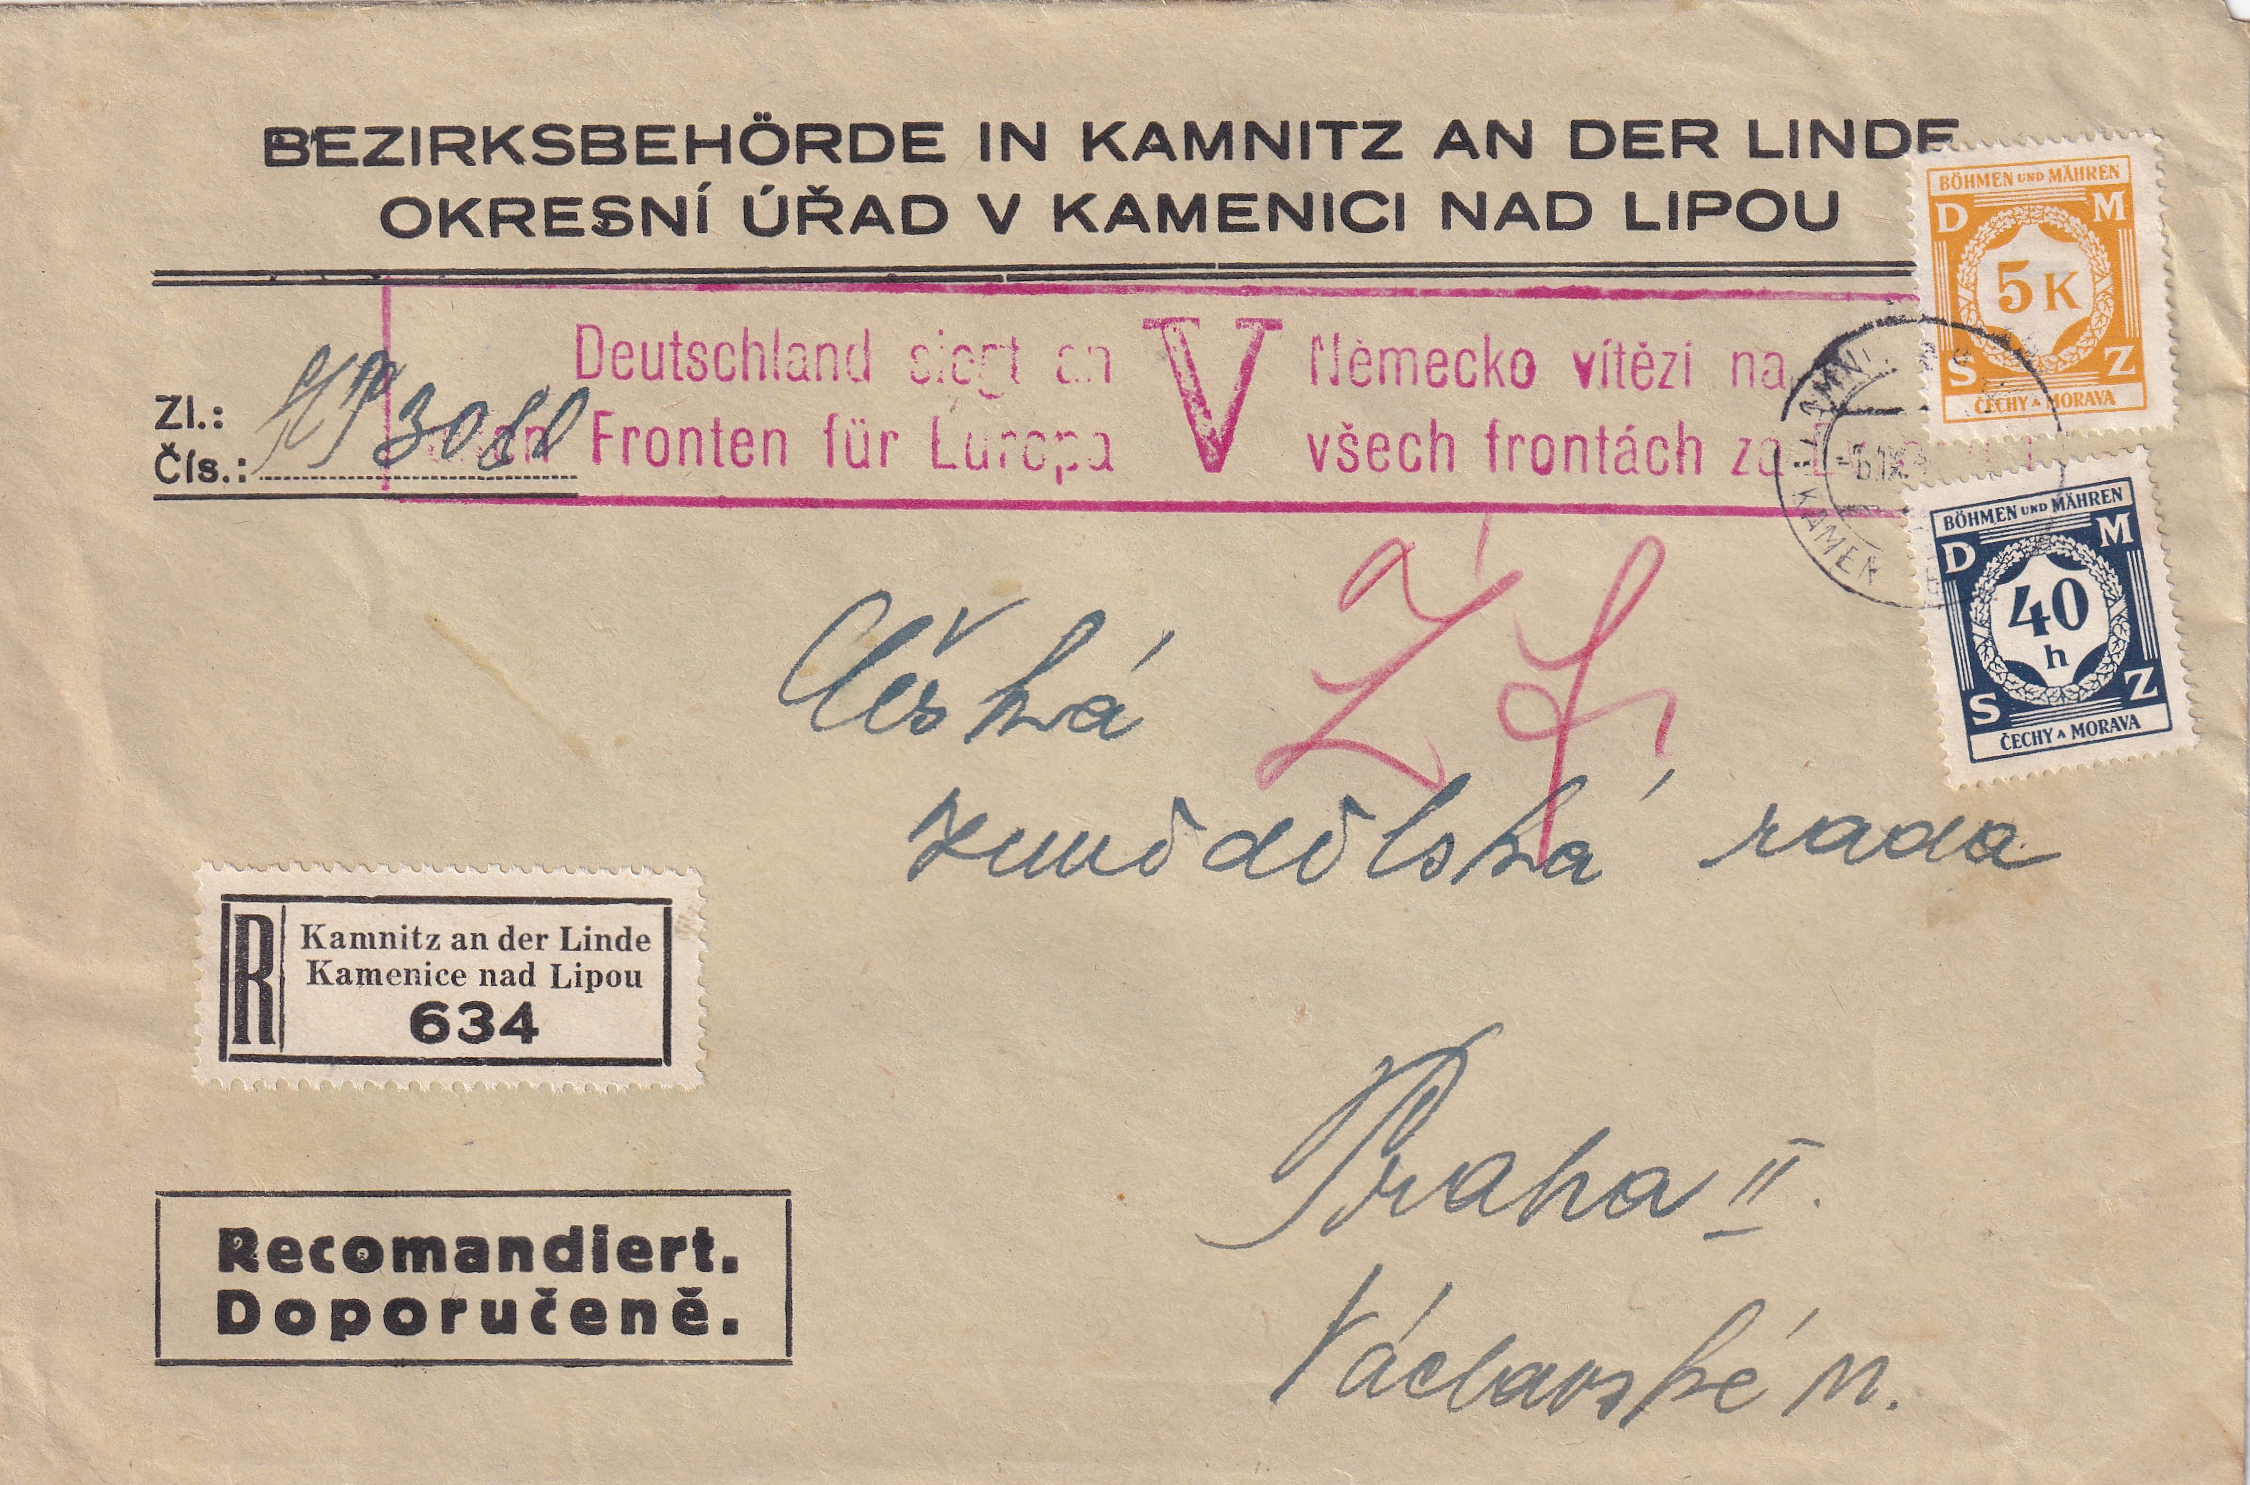 BEZIRKSBEHÖRDE IN KAMNITZ AN DER LINDE
OKRESNÍ ÚŘAD V KAMENICI NAD LIPOU
Deutschland siegt an
Fronten für Europa
V
Německo vítězí na
všech frontách za
Zl.:
Čís.:
BÖHMEN UND MÄHREN
D M
5 K
S Z
ČECHY A MORAVA
BÖHMEN UND MÄHREN
D M
40
h
S Z
ČECHY A MORAVA
Česká
zemědělská rada
R
Kamnitz an der Linde
Kamenice nad Lipou
634
Praha II.
Václavské n.
Recomandiert.
Doporučeně.